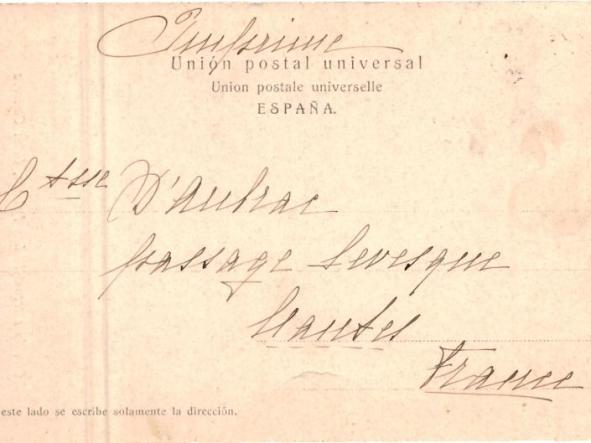 Imprimé
Unión postal universal
Union postale universelle
ESPAÑA.
Ctsse D'Aubrac
passage Levesque
Nantes
France
este lado se escribe solamente la dirección.